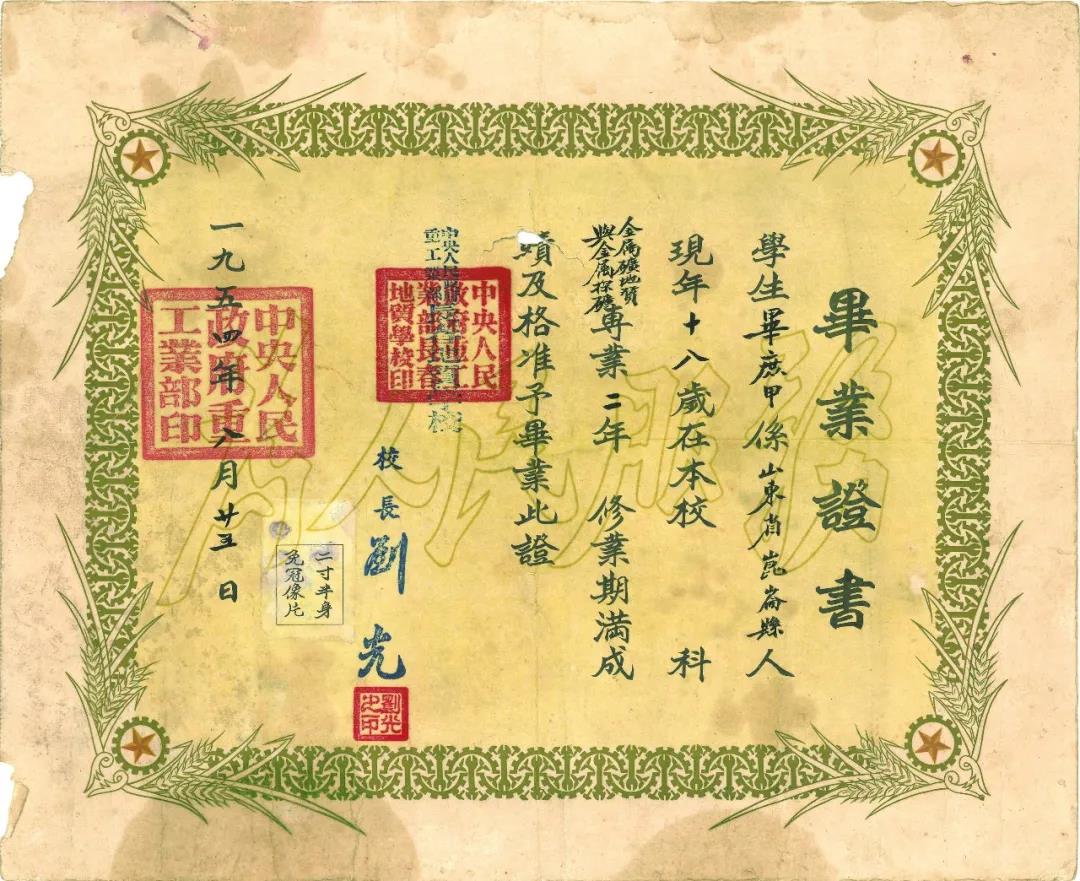 畢業證書
學生畢庶甲係山東省崑崙縣人
現年十八歲在本校　科
金属礦地質
與金属探礦
專業二年　修業期滿成
績及格准予畢業此證
中央人民政府
重工業部長春地質學校
中央人民
政府重工
業部長春
地質學校印
校長劉光
劉光
之印
二寸半身
免冠像片
一九五四年八月廿五日
中央人民
政府重
工業部印